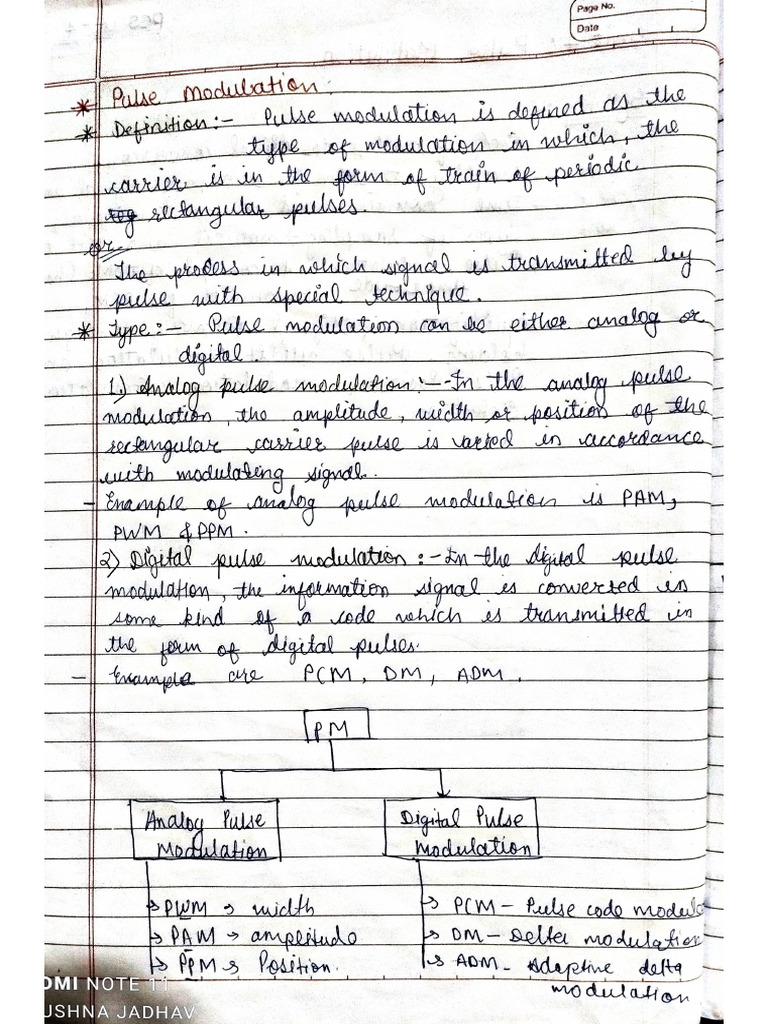 Page No.
Date
* Pulse Modulation:
* Definition:- Pulse modulation is defined as the
type of modulation in which, the
carrier is in the form of train of periodic
rectangular pulses.
or
The process in which signal is transmitted by
pulse with special technique.
* Type:- Pulse modulation can be either analog or
digital.
1.) Analog pulse modulation:- -In the analog pulse
modulation, the amplitude, width or position of the
rectangular carrier pulse is varied in accordance
with modulating signal.
- Example of analog pulse modulation is PAM,
PWM & PPM.
2) Digital pulse modulation:- -In the digital pulse
modulation, the information signal is converted in
some kind of a code which is transmitted in
the form of digital pulses.
- Example are PCM, DM, ADM.
PM
Analog Pulse Digital Pulse
Modulation Modulation
→ PWM → width → PCM - Pulse code modula
→ PAM → amplitude → DM - Delta modulation
→ PPM → Position. → ADM - Adaptive delta
modulation
DMI NOTE 11
USHNA JADHAV